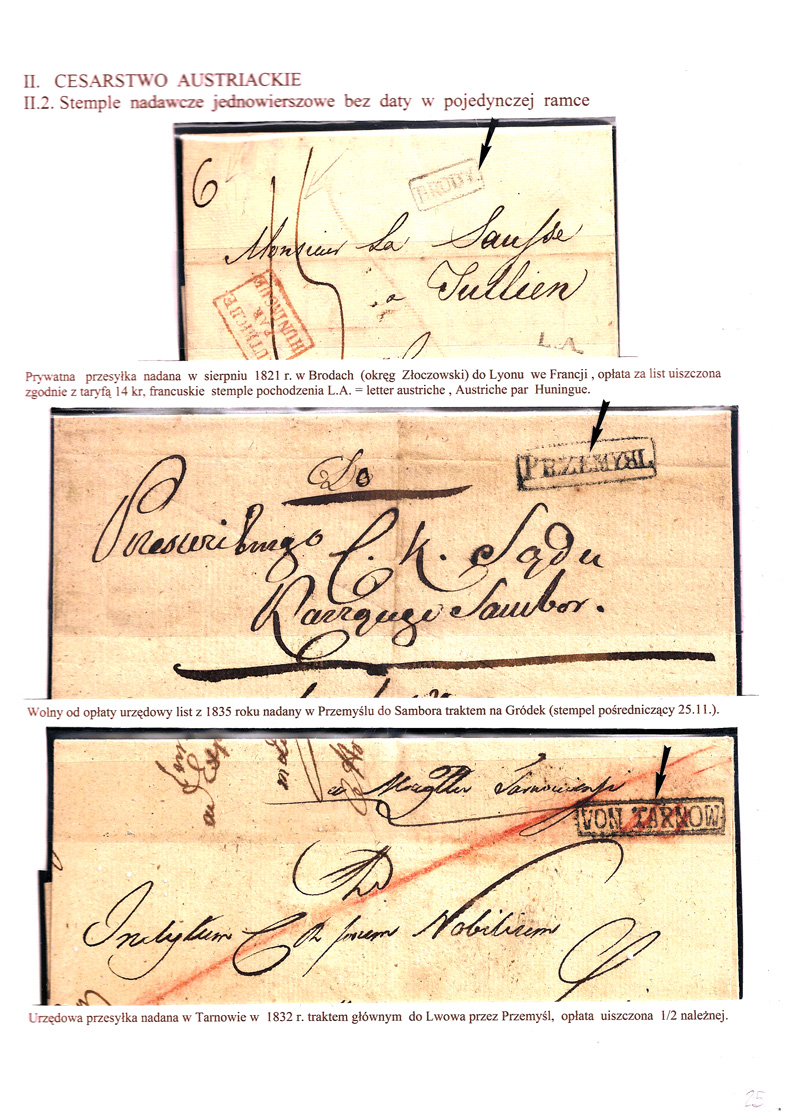 II. CESARSTWO AUSTRIACKIE
II.2. Stemple nadawcze jednowierszowe bez daty w pojedynczej ramce
6
BRODY
Monsieur La Sausse
a Jullien
AUTRICHE
PAR
HUNINGUE
L.A.
Prywatna przesyłka nadana w sierpniu 1821 r. w Brodach (okręg Złoczowski) do Lyonu we Francji , opłata za list uiszczona
zgodnie z taryfą 14 kr, francuskie stemple pochodzenia L.A. = letter austriche , Austriche par Huningue.
Do
PRZEMYSL
C. K. Sądu
Sambor.
Wolny od opłaty urzędowy list z 1835 roku nadany w Przemyślu do Sambora traktem na Gródek (stempel pośredniczący 25.11.).
VON TARNOW
Inclytum C R Nobilium
Urzędowa przesyłka nadana w Tarnowie w 1832 r. traktem głównym do Lwowa przez Przemyśl, opłata uiszczona 1/2 należnej.
25